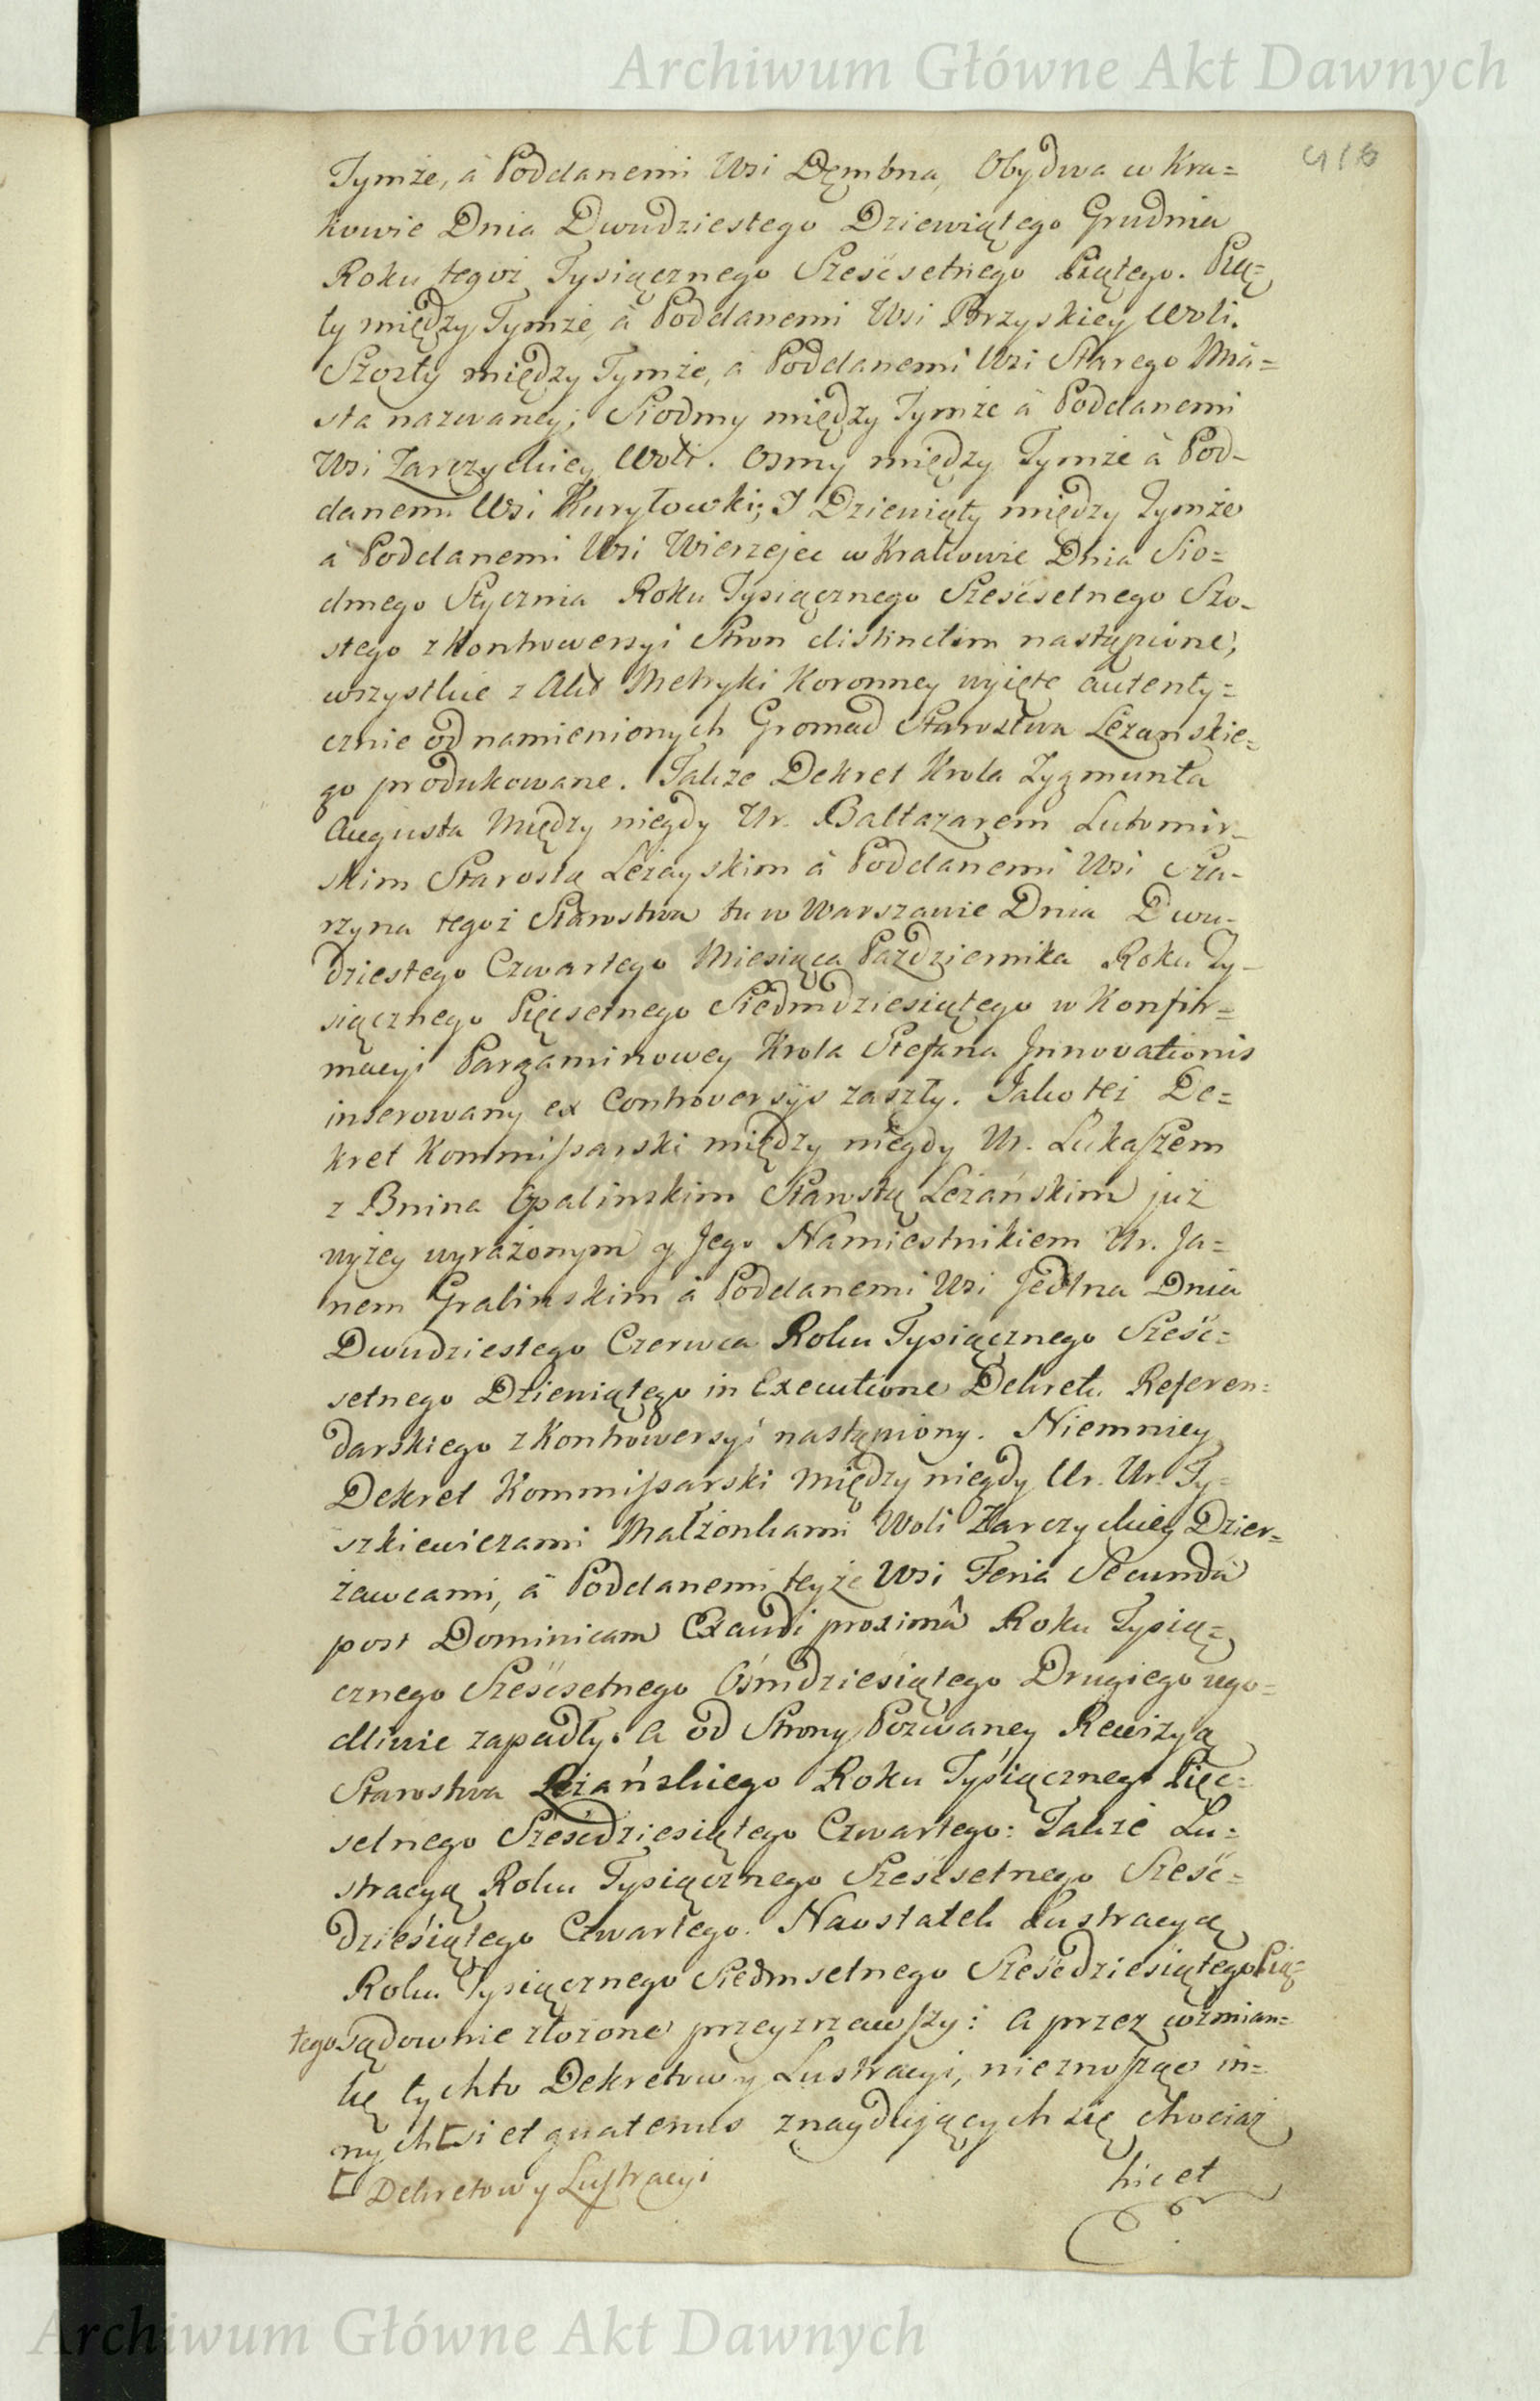 Archiwum Główne Akt Dawnych
416
Tymże, à Poddanemi Wsi Dęmbna, Obydwa w Kra=
kowie Dnia Dwudziestego Dziewiątego Grudnia
Roku tegoż Tysiącznego Sześćsetnego Piątego. Pią=
ty między Tymże, à Poddanemi Wsi Brzyskiey Woli.
Szosty między Tymże, à Poddanemi Wsi Starego Mia=
sta nazwaney; Siodmy między Tymże à Poddanemi
Wsi Zarzyckiey Woli. Osmy między Tymże à Pod-
danemi Wsi Kuryłowki; I Dziewiąty między Tymże
à Poddanemi Wsi Wierzejec w Krakowie Dnia Sio=
dmego Stycznia Roku Tysiącznego Sześćsetnego Szo-
stego z Kontrowersyi Stron distinctim nastąpione;
wszystkie z Akt Metryki Koronney wyięte autenty=
cznie od namienionych Gromad Starostwa Leżanskie=
go produkowane. Takze Dekret Krola Zygmunta
Augusta Między niegdy Ur. Baltazarem Lutomir-
skim Starostą Leżayskim à Poddanemi Wsi Sza-
rzyna tegoż Starostwa tu w Warszawie Dnia Dwu-
dziestego Czwartego Miesiąca Pazdziernika Roku Ty-
siącznego Pięcsetnego Siedmdziesiątego w Konfir=
macyi Pargaminowey Krola Stefana Innovationis
inserowany ex Controversijs zaszły. Jako też De=
kret Kommissarski między niegdy Ur. Lukaszem
z Bnina Opalinskim Starostą Leżańskim już
wyżey wyrażonym y Jego Namiestnikiem Ur. Ja=
nem Gralinskim à Poddanemi Wsi Jedlna Dnia
Dwudziestego Czerwca Roku Tysiącznego Sześć=
setnego Dziewiątego in Executione Dekretu Referen=
darskiego z Kontrowersyi nastąpiony. Niemniey
Dekret Kommissarski między niegdy Ur. Ur. Ty-
szkiewiczami Małżonkami Woli Zarczyckiey Dzier=
żawcami, à Poddanemi teyże Wsi Feria Secunda
post Dominicam Exaudi proximâ Roku Tysią=
cznego Sześćsetnego Ósmdziesiątego Drugiego ugo=
dliwie zapadły. A od Strony Pozwaney Rewizyą
Starostwa Leżańskiego Roku Tysiącznego Pięc=
setnego Sześćdziesiątego Czwartego: Także Lu=
stracyą Roku Tysiącznego Sześćsetnego Sześć=
dziesiątego Czwartego. Naostatek Lustracyą
Roku Tysiącznego Siedmsetnego Sześćdziesiątego Pią=
tego sądownie złożone przeyzrzawszy: A przez wzmian=
kę tychto Dekretow y Lustracyi, nie znosząc in=
nych [ si et quatenus znaydujących się chociaż
[ Dekretow y Lustracyi
hic et
Archiwum Główne Akt Dawnych